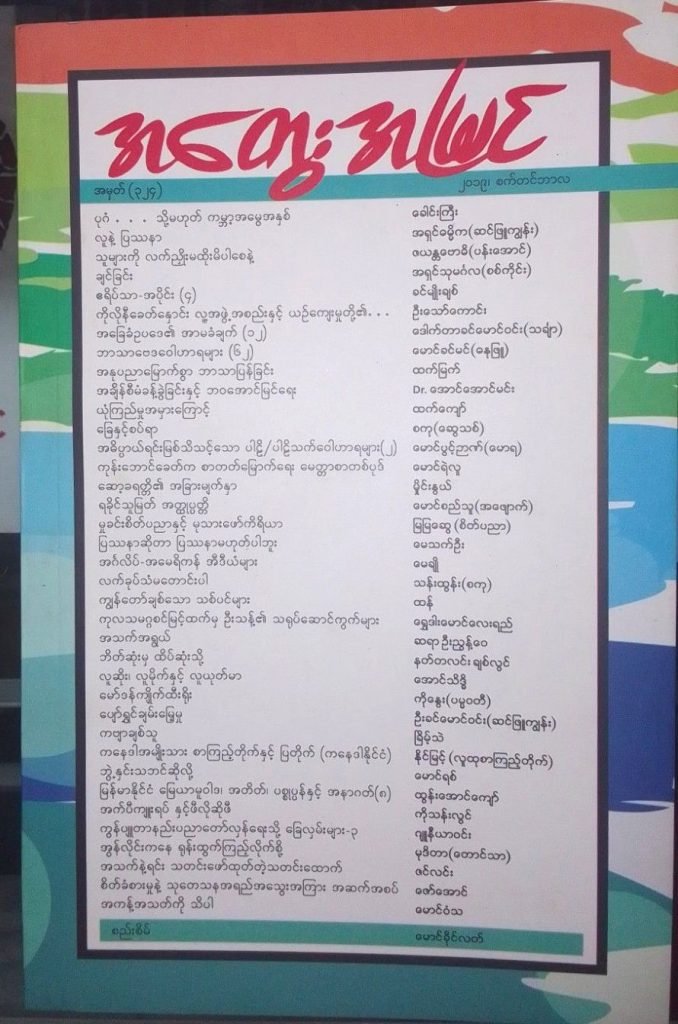 အတွေးအမြင်
အမှတ် (၃၂၄) ၂၀၁၉၊ စက်တင်ဘာလ
ပုဂံ . . . သို့မဟုတ် ကမ္ဘာ့အမွေအနှစ် ခေါင်းကြီး
လူနဲ့ ပြဿနာ အရှင်ဓမ္မိက(ဆင်ဖြူကျွန်း)
သူများကို လက်ညှိုးမထိုးမိပါစေနဲ့ ဇယန္တဗောဓိ(ပန်းအောင်)
ချင်ခြင်း အရှင်သုမင်္ဂလ(စစ်ကိုင်း)
ဧရိပ်သာ-အပိုင်း (၄) ခင်မျိုးချစ်
ကိုလိုနီခေတ်နှောင်း လူ့အဖွဲ့အစည်းနှင့် ယဉ်ကျေးမှုတို့၏... ဦးသော်ကောင်း
အခြေခံဥပဒေ၏ အာမခံချက် (၁၂) ဒေါက်တာခင်မောင်ဝင်း(သင်္ချာ)
ဘာသာဗေဒဝေါဟာရများ (၆၂) မောင်ခင်မင်(ဓနုဖြူ)
အနုပညာမြောက်စွာ ဘာသာပြန်ခြင်း ထက်မြက်
အချိန်စီမံခန့်ခွဲခြင်းနှင့် ဘဝအောင်မြင်ရေး Dr. အောင်အောင်မင်း
ယုံကြည်မှုအမှားကြောင့် ထက်ကျော်
ခြေနှင့်စပ်ရာ စကု(ဆွေသစ်)
အဓိပ္ပာယ်ရင်းမြစ်သိသင့်သော ပါဠိ/ပါဠိသက်ဝေါဟာရများ(၂) မောင်ပွင့်ဉာဏ်(မောရ)
ကုန်းဘောင်ခေတ်က စာတတ်မြောက်ရေး မေတ္တာစာတစ်ပုဒ် မောင်ရဲလူ
ဆော့ခရတ္တိ၏ အခြားမျက်နှာ မှိုင်းနွယ်
ရခိုင်သူမြတ် အတ္ထုပ္ပတ္တိ မောင်စည်သူ(အဖျောက်)
မှုခင်းစိတ်ပညာနှင့် မုသားဖော်ကိရိယာ မြမြဆွေ (စိတ်ပညာ)
ပြဿနာဆိုတာ ပြဿနာမဟုတ်ပါဘူး မေသက်ဦး
အင်္ဂလိပ်-အမေရိကန် အီဒီယံများ မေချို
လက်ခုပ်သံမတောင်းပါ သန်းထွန်း(စကု)
ကျွန်တော်ချစ်သော သစ်ပင်များ ထန်
ကုလသမဂ္ဂစင်မြင့်ထက်မှ ဦးသန့်၏ သရုပ်ဆောင်ကွက်များ ရွှေဒါးမောင်လေးရည်
အသက်အရွယ် ဆရာဦးညွန့်ဝေ
ဘိတ်ဆုံးမှ ထိပ်ဆုံးသို့ နတ်တလင်း ချစ်လွင်
လူဆိုး၊ လူမိုက်နှင့် လူယုတ်မာ အောင်သိဒ္ဓိ
မော်ဒန်ကျိုက်ထီးရိုး ကိုနွေး(ပမ္မဝတီ)
ပျော်ရွှင်ချမ်းမြေ့မှု ဦးခင်မောင်ဝင်း(ဆင်ဖြူကျွန်း)
ကဗျာချစ်သူ ငြိမ့်သဲ
ကနေဒါအမျိုးသား စာကြည့်တိုက်နှင့် ပြတိုက် (ကနေဒါနိုင်ငံ) နိုင်မြင့် (လူထုစာကြည့်တိုက်)
ဘွဲ့နှင်းသဘင်ဆိုလို့ မောင်ရစ်
မြန်မာနိုင်ငံ မြေယာမူဝါဒ၊ အတိတ်၊ ပစ္စုပ္ပန်နှင့် အနာဂတ်(၈) ထွန်းအောင်ကျော်
အက်ပီကျူးရပ် နှင့်ဖီလိုဆိုဖီ ကိုသန်းလွင်
ကွန်ပျူတာနည်းပညာတော်လှန်ရေးသို့ ခြေလှမ်းများ-၃ ဂျူနီယာဝင်း
အွန်လိုင်းကနေ ရုန်းထွက်ကြည့်လိုက်စို့ မုဒိတာ(တောင်သာ)
အသက်နဲ့ရင်း သတင်းဖော်ထုတ်တဲ့သတင်းထောက် ဇင်လင်း
စိတ်ခံစားမှုနဲ့ သုတေသနအရည်အသွေးအကြား အဆက်အစပ် ဇော်အောင်
အကန့်အသတ်ကို သိပါ မောင်ဝံသ
စည်းစိမ် မောင်ခိုင်လတ်